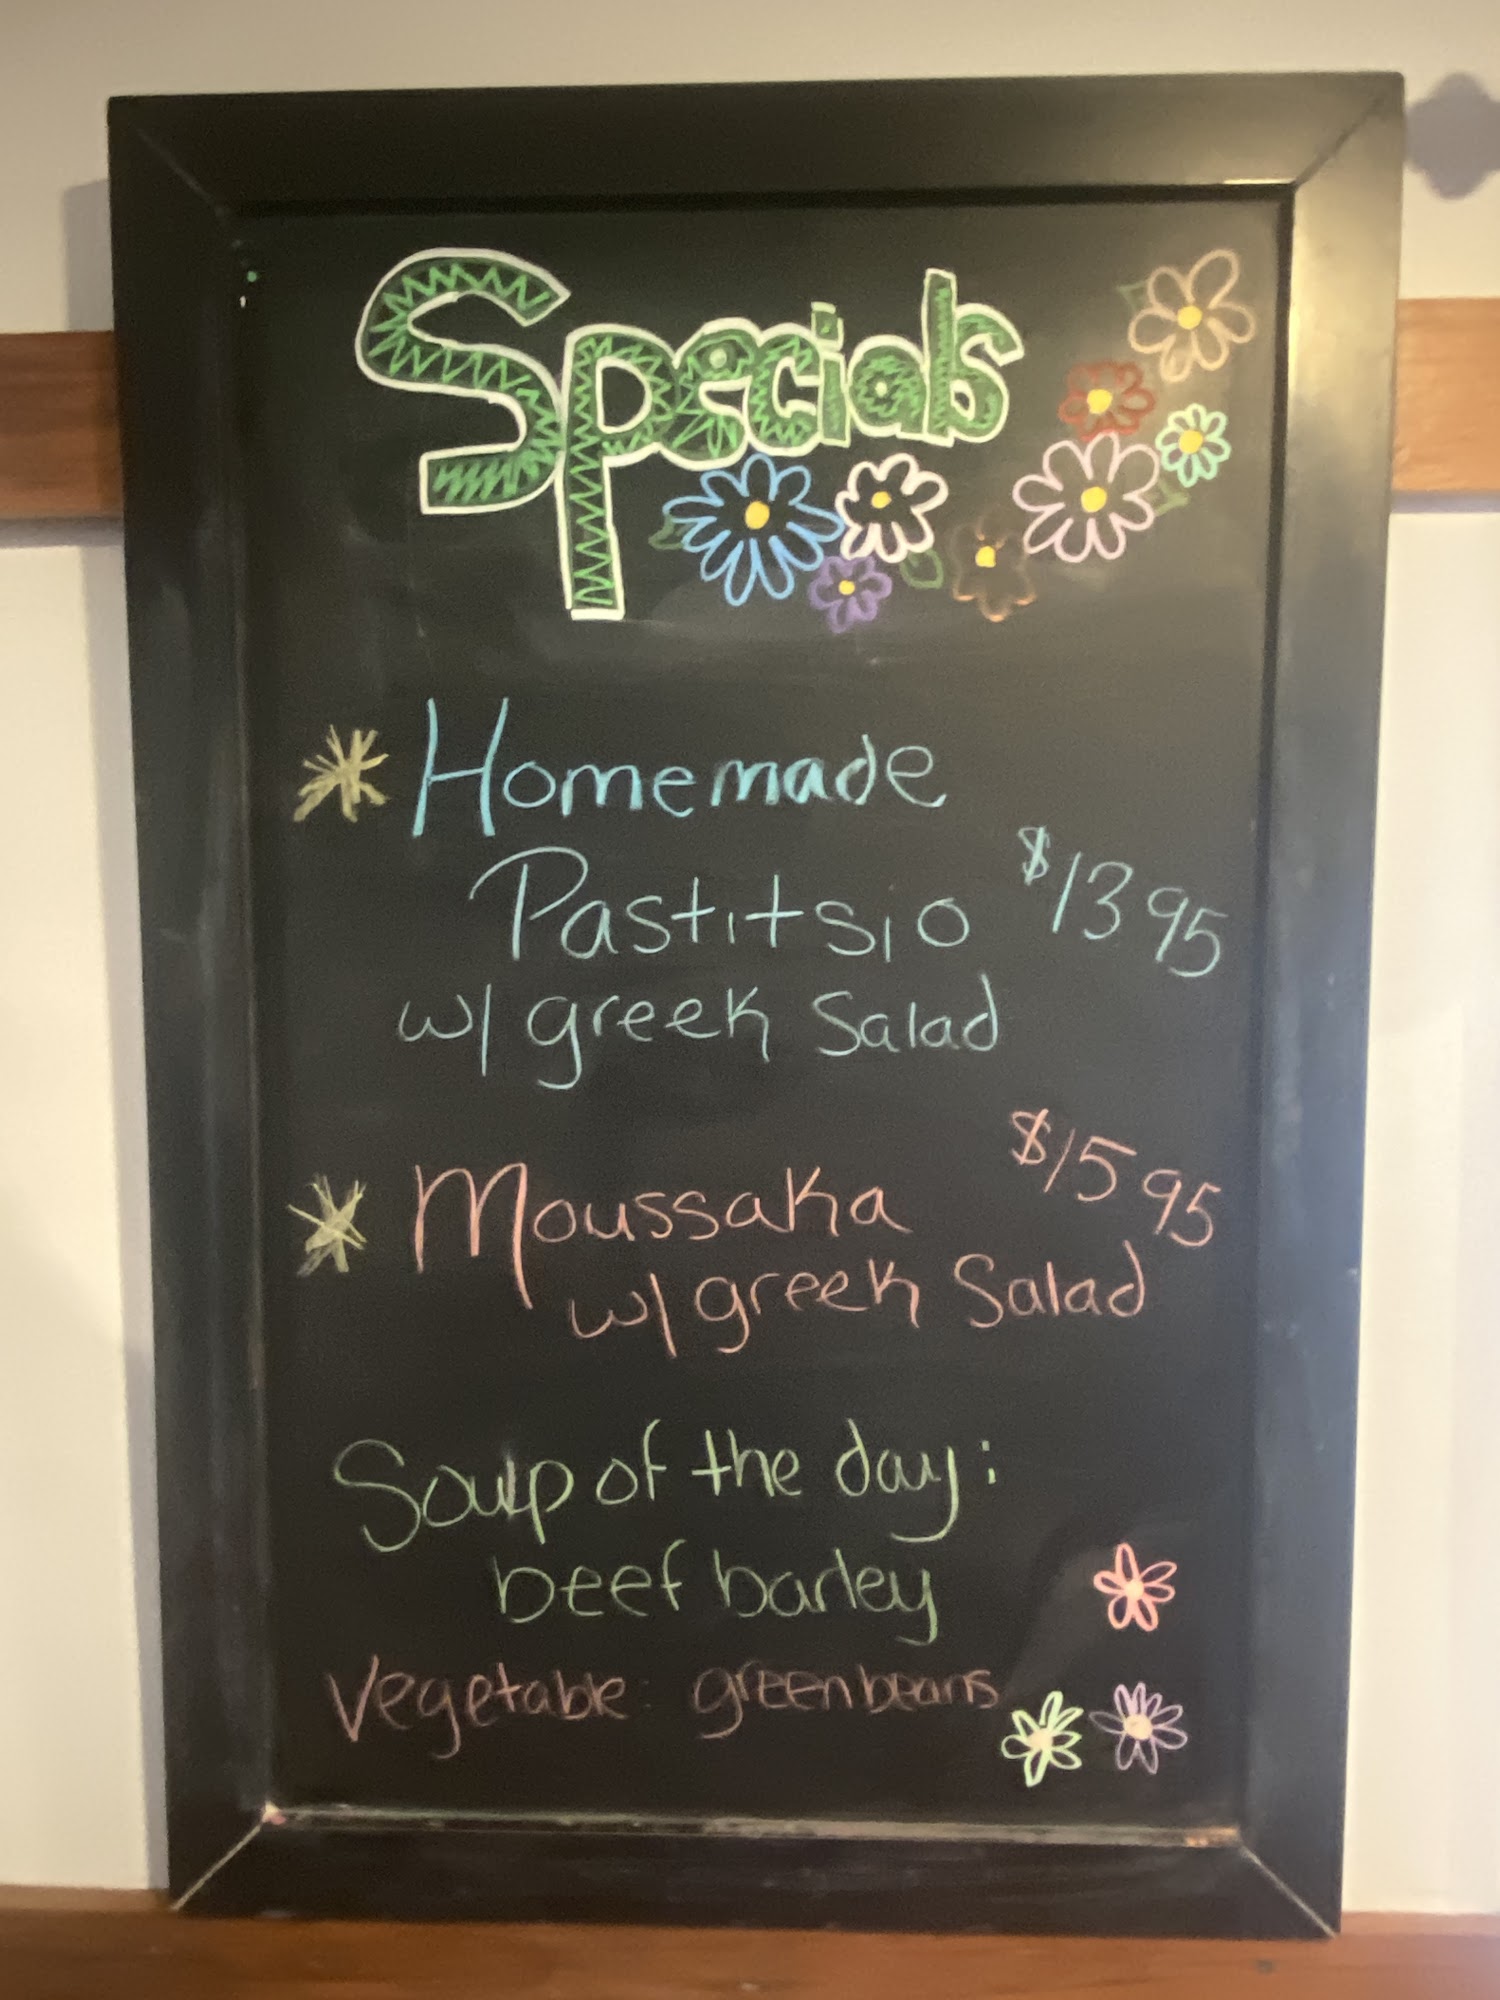 Specials
Homemade
Pastitsio $13 95
w/ greek Salad
Moussaka $15 95
w/ greek Salad
Soup of the day:
beef barley
Vegetable: green beans